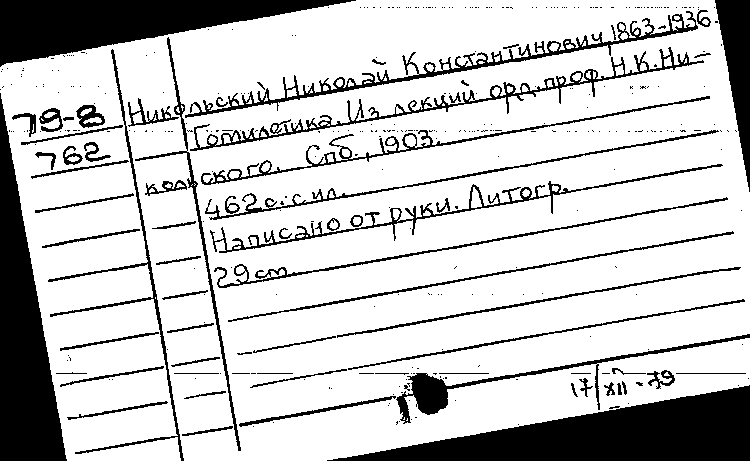 79-8
762
Никольский, Николай Константинович, 1863-1936.
Гомилетика. Из лекций орд. проф. Н.К.Ни-
кольского. Спб., 1903.
462 с. с ил.
Написано от руки. Литогр.
29 cm.
17/XII-79